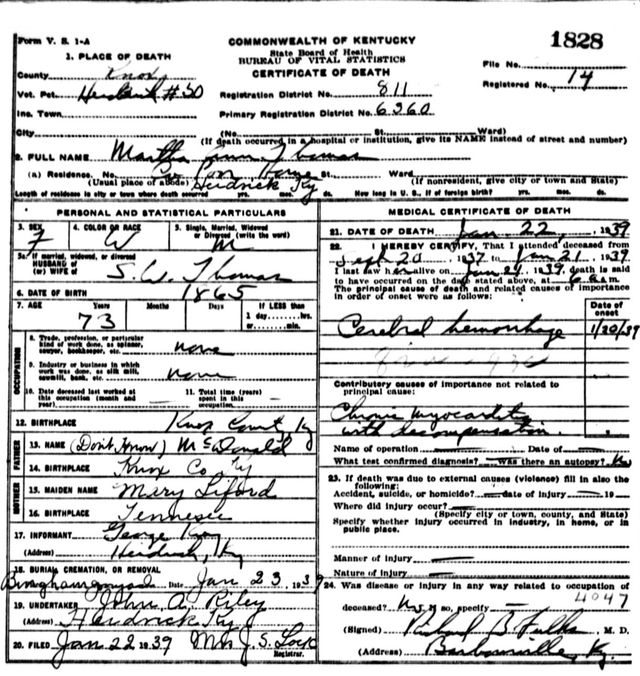 Form V. S. 1-A
COMMONWEALTH OF KENTUCKY
State Board of Health
BUREAU OF VITAL STATISTICS
CERTIFICATE OF DEATH
1828
File No.
Registered No. 14
1. PLACE OF DEATH
County Knox
Vot. Pct. Heidrick #30
Registration District No. 811
Inc. Town
Primary Registration District No. 6360
City (No. St. Ward)
(If death occurred in a hospital or institution, give its NAME instead of street and number)
2. FULL NAME Martha Thomas
(a) Residence. No. St. Ward
(Usual place of abode) Heidrick Ky (If nonresident, give city or town and State)
Length of residence in city or town where death occurred yrs. mos. ds. How long in U. S., if of foreign birth? yrs. mos. ds.
PERSONAL AND STATISTICAL PARTICULARS
3. SEX 4. COLOR OR RACE 5. Single, Married, Widowed or Divorced (write the word)
F W M
5a. If married, widowed, or divorced
HUSBAND of
(or) WIFE of S. W. Thomas
6. DATE OF BIRTH 1865
7. AGE Years Months Days If LESS than
73 1 day.....hrs.
or.....min.
OCCUPATION
8. Trade, profession, or particular
kind of work done, as spinner,
sawyer, bookkeeper, etc. none
9. Industry or business in which
work was done, as silk mill,
sawmill, bank, etc. none
10. Date deceased last worked at
this occupation (month and
year)
11. Total time (years)
spent in this
occupation
12. BIRTHPLACE Knox County Ky
FATHER
13. NAME (Don't Know) McDonald
14. BIRTHPLACE Knox Co Ky
MOTHER
15. MAIDEN NAME Mary Liford
16. BIRTHPLACE Tennessee
17. INFORMANT George
(Address) Heidrick, Ky
18. BURIAL, CREMATION, OR REMOVAL
Date Jan 23 1939
19. UNDERTAKER John A. Riley
(Address) Heidrick Ky
20. FILED Jan 22 39 Mrs J. S. Lock
Registrar.
MEDICAL CERTIFICATE OF DEATH
21. DATE OF DEATH Jan. 22, 1939
22. I HEREBY CERTIFY, That I attended deceased from
Sept 20 1937 to Jan 21, 1939
I last saw her alive on Jan 21, 1939, death is said
to have occurred on the date stated above, at 6 a.m.
The principal cause of death and related causes of importance
in order of onset were as follows:
Date of
onset
Cerebral hemorrhage 1/20/39
Contributory causes of importance not related to
principal cause:
Chronic myocarditis
with decompensation.
Name of operation Date of
What test confirmed diagnosis? Was there an autopsy? No
23. If death was due to external causes (violence) fill in also the
following:
Accident, suicide, or homicide? date of injury 19
Where did injury occur?
(Specify city or town, county, and State)
Specify whether injury occurred in industry, in home, or in
public place.
Manner of injury
Nature of injury
24. Was disease or injury in any way related to occupation of
4047
deceased? No If so, specify
(Signed) B. Fulks, M. D.
(Address) Barbourville, Ky.